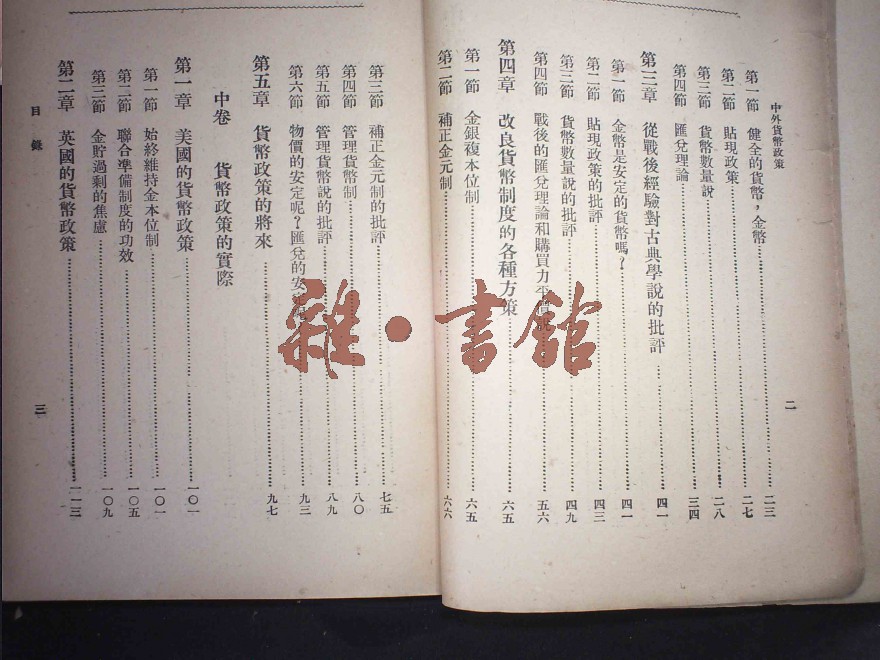 中外貨幣政策
二
第一節 健全的貨幣,金幣……二三
第二節 貼現政策……二七
第三節 貨幣數量說……二八
第四節 匯兌理論……三四
第三章 從戰後經驗對古典學說的批評……四一
第一節 金幣是安定的貨幣嗎?……四一
第二節 貼現政策的批評……四三
第三節 貨幣數量說的批評……四九
第四節 戰後的匯兌理論和購買力平……五六
第四章 改良貨幣制度的各種方策……六五
第一節 金銀複本位制……六五
第二節 補正金元制……六六
第三節 補正金元制的批評……七五
第四節 管理貨幣制……八〇
第五節 管理貨幣說的批評……八九
第六節 物價的安定呢?匯兌的安……九三
第五章 貨幣政策的將來……九七
中卷 貨幣政策的實際
第一章 美國的貨幣政策……一〇一
第一節 始終維持金本位制……一〇一
第二節 聯合準備制度的功效……一〇五
第三節 金貯過剩的焦慮……一〇九
第二章 英國的貨幣政策……一一三
目錄
三
雜·書館